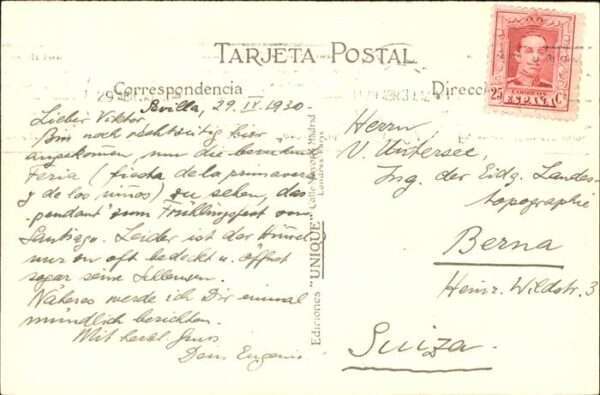 TARJETA POSTAL
Correspondencia
Direcc
25 CORREOS ESPAÑA Cs
Sevilla, 29.IV.1930.
Lieber Viktor,
Bin noch rechtzeitig hier
angekommen, um die berühmte
Feria (fiesta de la primavera
y de los niños) zu sehen, das
pendant zum Frühlingsfest von
Santiago. Leider ist der Himmel
nur zu oft bedeckt u. öffnet
sogar seine
Näheres werde ich Dir einmal
mündlich berichten.
Mit herzl. Gruss
Dein Eugenio
Ediciones "UNIQUE" Calle Mayor, Madrid
Herrn,
V. Untersee,
Ing. der Eidg. Landes-
topographie
Berna
Heinr. Wildstr. 3
Suiza.